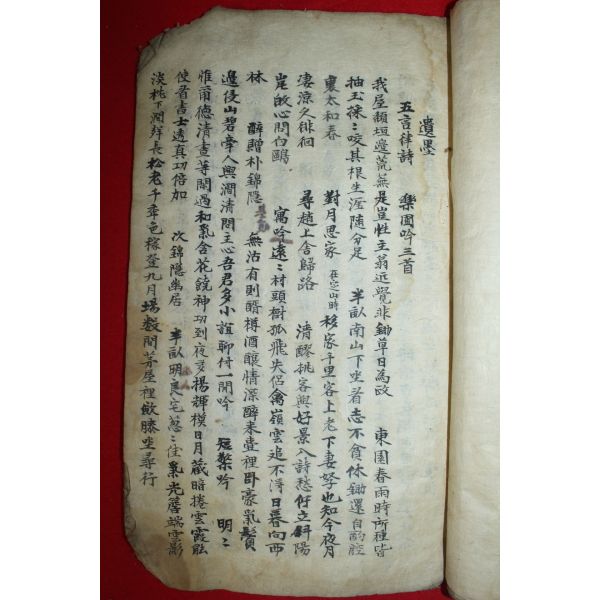 遺墨
五言律詩 樂園吟三首
我屋頹垣邊荒蕪是豈性主翁近覺非鋤草日為政 東園春雨時所種皆
抽玉徠〻咬其根生涯隨分足 半畝南山下坐看志不貪休鋤還自酌腔
裏太和春 對月思家 在定山時 移家千里客上老下妻孥也知今夜月
凄涼久徘徊 尋趙上舍歸路 清醪挑客興好景入詩愁佇立斜陽
崑啟心問白鷗 寓吟 遠〻村頭樹孤飛失侶禽嶺雲追不得日暮向西
林 醉贈朴錦隱 無沽有則醑樽酒釀情深醉來壺裡卧豪氣鬢
邊侵山碧牽人興澗清開主心吾君多小誼聊付一開吟 短檠吟 明〻
惟爾德清查等閒過和氣含花饒神功到夜亥揚輝模日月藏暗捲雲霞能
使看書士透真功倍加 次錦隱幽居 半畝明良宅蔥〻佳氣光簷端雲影
淡枕下澗鮮長松老千章色稼登九月場數間茅屋裡歛膝坐尋行